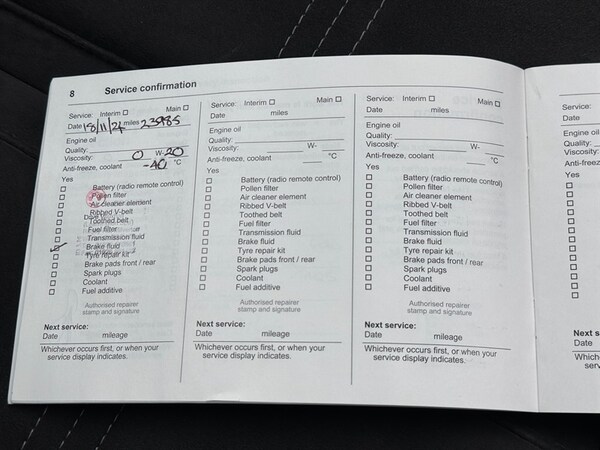 8 Service confirmation
Service: Interim ☐ Main ☐
Date 18/11/24 miles 23985
Engine oil
Quality:
Viscosity: 0 W-20
Anti-freeze, coolant -40 °C
Yes
☐ Battery (radio remote control)
☐ Pollen filter
☐ Air cleaner element
☐ Ribbed V-belt
☐ Toothed belt
☐ Fuel filter
☐ Transmission fluid
☑ Brake fluid
☐ Tyre repair kit
☐ Brake pads front / rear
☐ Spark plugs
☐ Coolant
☐ Fuel additive
Authorised repairer
stamp and signature
Next service:
Date mileage
Whichever occurs first, or when your
service display indicates.
Service: Interim ☐ Main ☐
Date miles
Engine oil
Quality:
Viscosity: W-
Anti-freeze, coolant °C
Yes
☐ Battery (radio remote control)
☐ Pollen filter
☐ Air cleaner element
☐ Ribbed V-belt
☐ Toothed belt
☐ Fuel filter
☐ Transmission fluid
☐ Brake fluid
☐ Tyre repair kit
☐ Brake pads front / rear
☐ Spark plugs
☐ Coolant
☐ Fuel additive
Authorised repairer
stamp and signature
Next service:
Date mileage
Whichever occurs first, or when your
service display indicates.
Service: Interim ☐ Main ☐
Date miles
Engine oil
Quality:
Viscosity: W-
Anti-freeze, coolant °C
Yes
☐ Battery (radio remote control)
☐ Pollen filter
☐ Air cleaner element
☐ Ribbed V-belt
☐ Toothed belt
☐ Fuel filter
☐ Transmission fluid
☐ Brake fluid
☐ Tyre repair kit
☐ Brake pads front / rear
☐ Spark plugs
☐ Coolant
☐ Fuel additive
Authorised repairer
stamp and signature
Next service:
Date mileage
Whichever occurs first, or when your
service display indicates.
Service:
Date
Engine oil
Quality:
Viscosity:
Yes
Next
Date
Which
serv